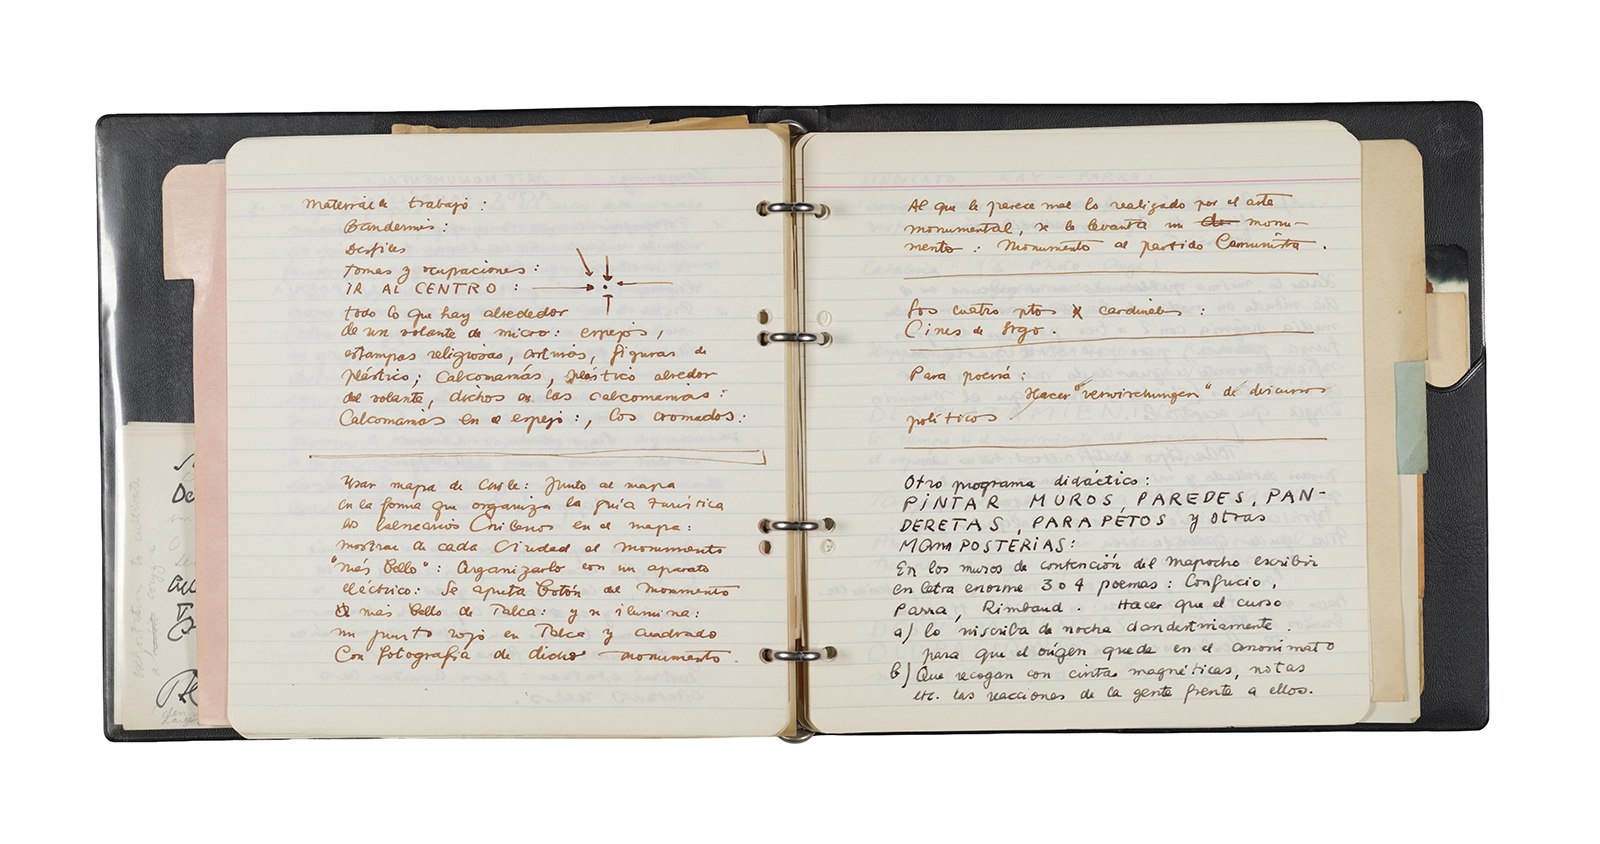 Material de trabajo :
Banderines :
Desfiles
tomas y ocupaciones :
IR AL CENTRO :
todo lo que hay alrededor
de un volante de micro : espejos ,
estampas religiosas, cortinas, figuras de
plástico; Calcomanías, plástico alrededor
del volante, dichos en las calcomanías :
Calcomanías en el espejo : , los cromados.
Usar mapa de Chile : Junto al mapa
en la forma que organiza la guía turística
los balnearios Chilenos en el mapa :
mostrar de cada Ciudad el monumento
"más bello" : Organizarlo con un aparato
eléctrico : Se aprieta botón del monumento
más bello de Talca : y se ilumina :
un punto rojo en Talca y cuadrado
con fotografía de dicho monumento.
Al que le parece mal lo realizado por el arte
monumental, se le levanta un de monu-
mento : Monumento al partido Comunista .
Los cuatro ptos cardinales :
Cines de Stgo .
Para poesía :
Hacer "verwirchungen" de discursos
políticos
Otro programa didáctico :
PINTAR MUROS, PAREDES, PAN-
DERETAS, PARAPETOS y otras
MAMPOSTERIAS :
En los muros de contención del Mapocho escribir
en letra enorme 3 o 4 poemas : Confucio,
Parra, Rimbaud . Hacer que el curso
a) lo inscriba de noche clandestinamente .
para que el origen quede en el anonimato
b) Que recogan con cintas magnéticas, notas
etc. las reacciones de la gente frente a ellos.